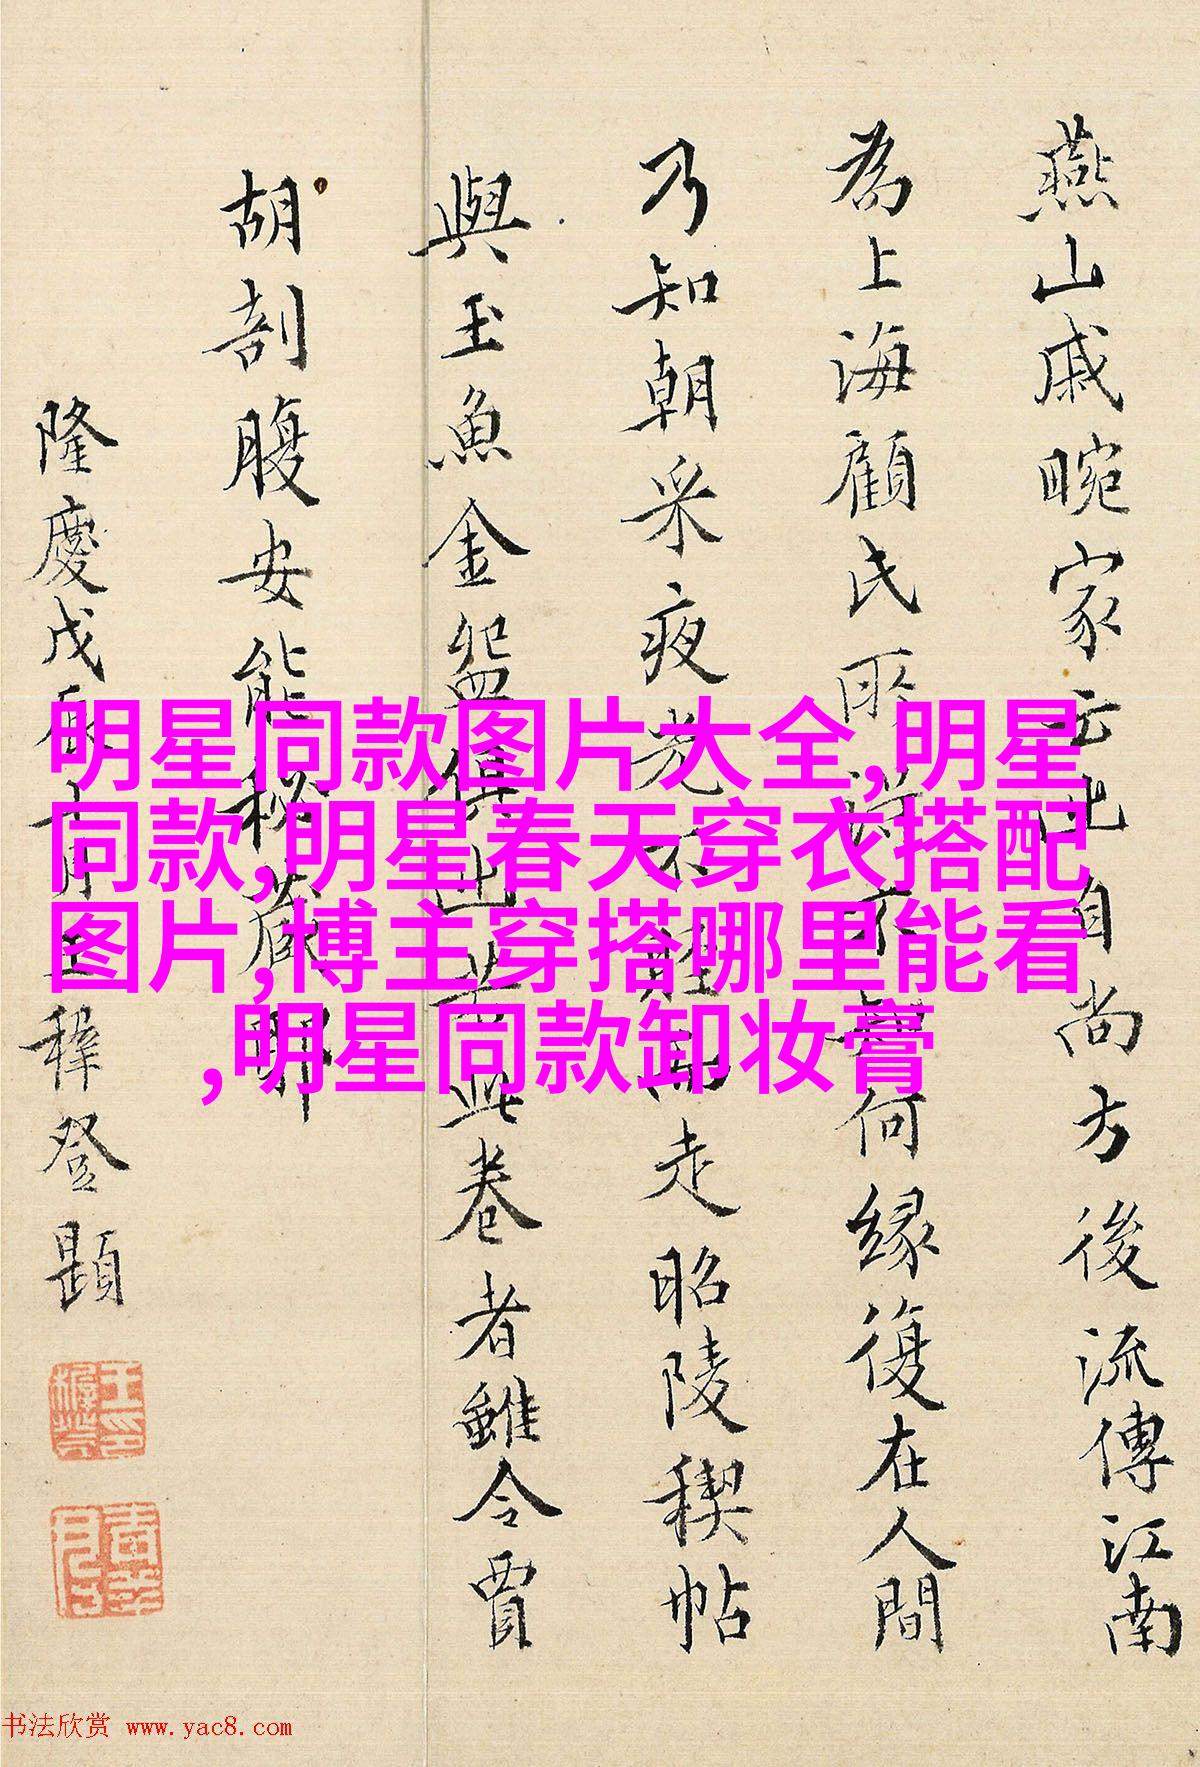 燕山戚畹家云此自尚方後流傳江南
為上海顧氏所誰不知何緣復在人間
乃知朝采夜光不脛而走昭陵稧帖
與玉魚金盌俱出茲此卷者雖令賈
胡剖腹安能秘藏耶
隆慶戊辰十月王穉登題
明星同款图片大全,明星
同款,明星春天穿衣搭配
图片,博主穿搭哪里能看
,明星同款卸妆膏
书法欣赏 www.yac8.com